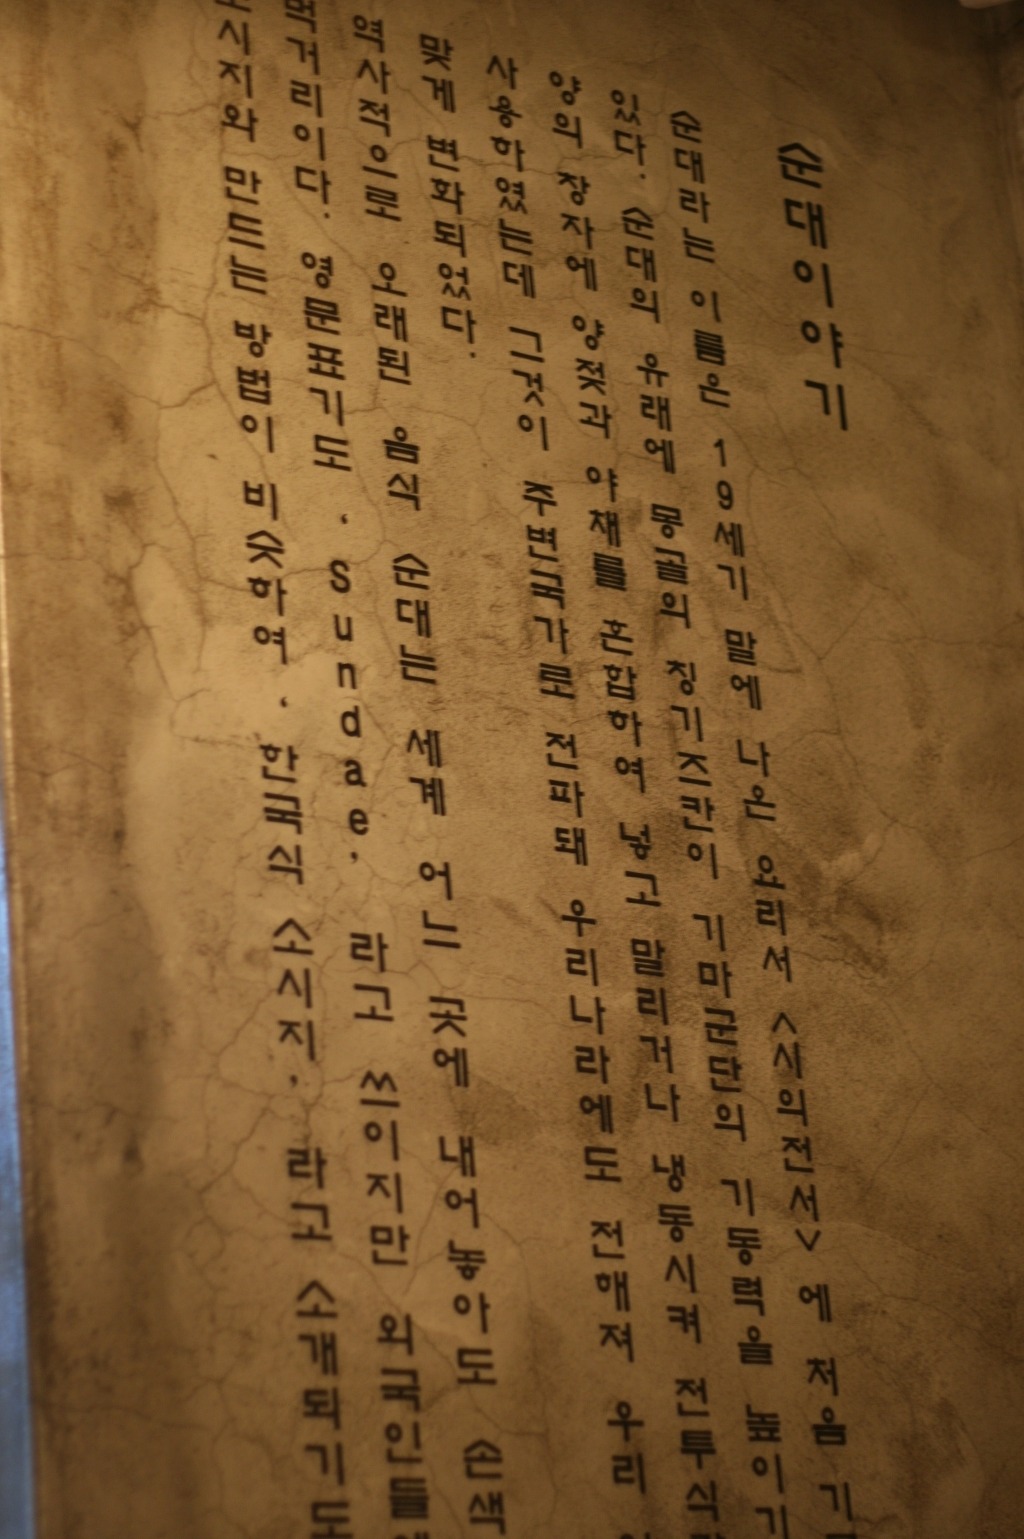 순대이야기
순대라는 이름은 19세기 말에 나온 요리서 <시의전서> 에 처음 기
있다. 순대의 유래에 몽골의 징기즈칸이 기마군단의 기동력을 높이기
양의 창자에 양젖과 야채를 혼합하여 넣고 말리거나 냉동시켜 전투식
사용하였는데 그것이 주변국가로 전파돼 우리나라에도 전해져 우리
맞게 변화되었다.
역사적으로 오래된 음식 순대는 세계 어느 곳에 내어놓아도 손색
먹거리이다. 영문표기로 'Sundae' 라고 쓰이지만 외국인들에
만드는 방법이 비슷하여 '한국식 소시지' 라고 소개되기도